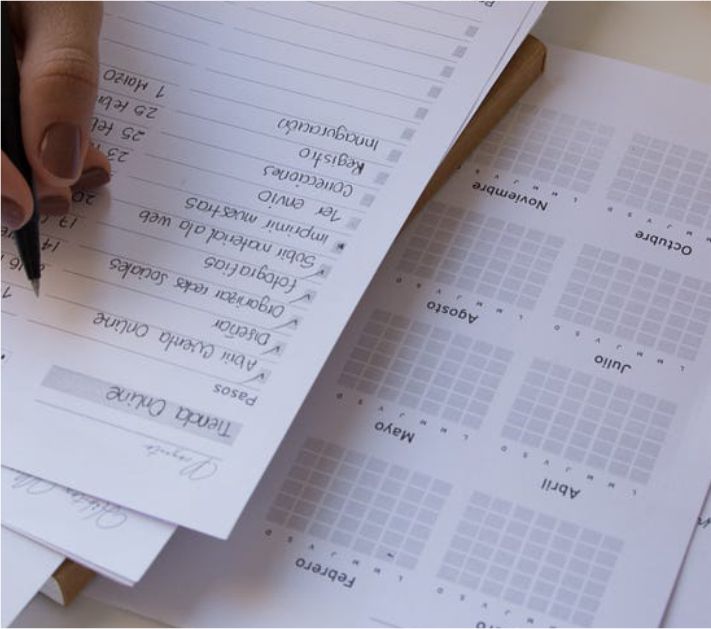 Proyecto
Tienda Online
Pasos
Abrir cuenta Online
Diseñar
Organizar redes sociales
Fotografias
Subir material a la web
Imprimir muestras
1er envio
Correcciones
Registro
Inauguración
14
17
20
23
25 feb
25 feb
1 Marzo
Febrero
L M M J V S D
Abril
L M M J V S D
Mayo
L M M J V S D
Julio
L M M J V S D
Agosto
L M M J V S D
Octubre
L M M J V S D
Noviembre
L M M J V S D